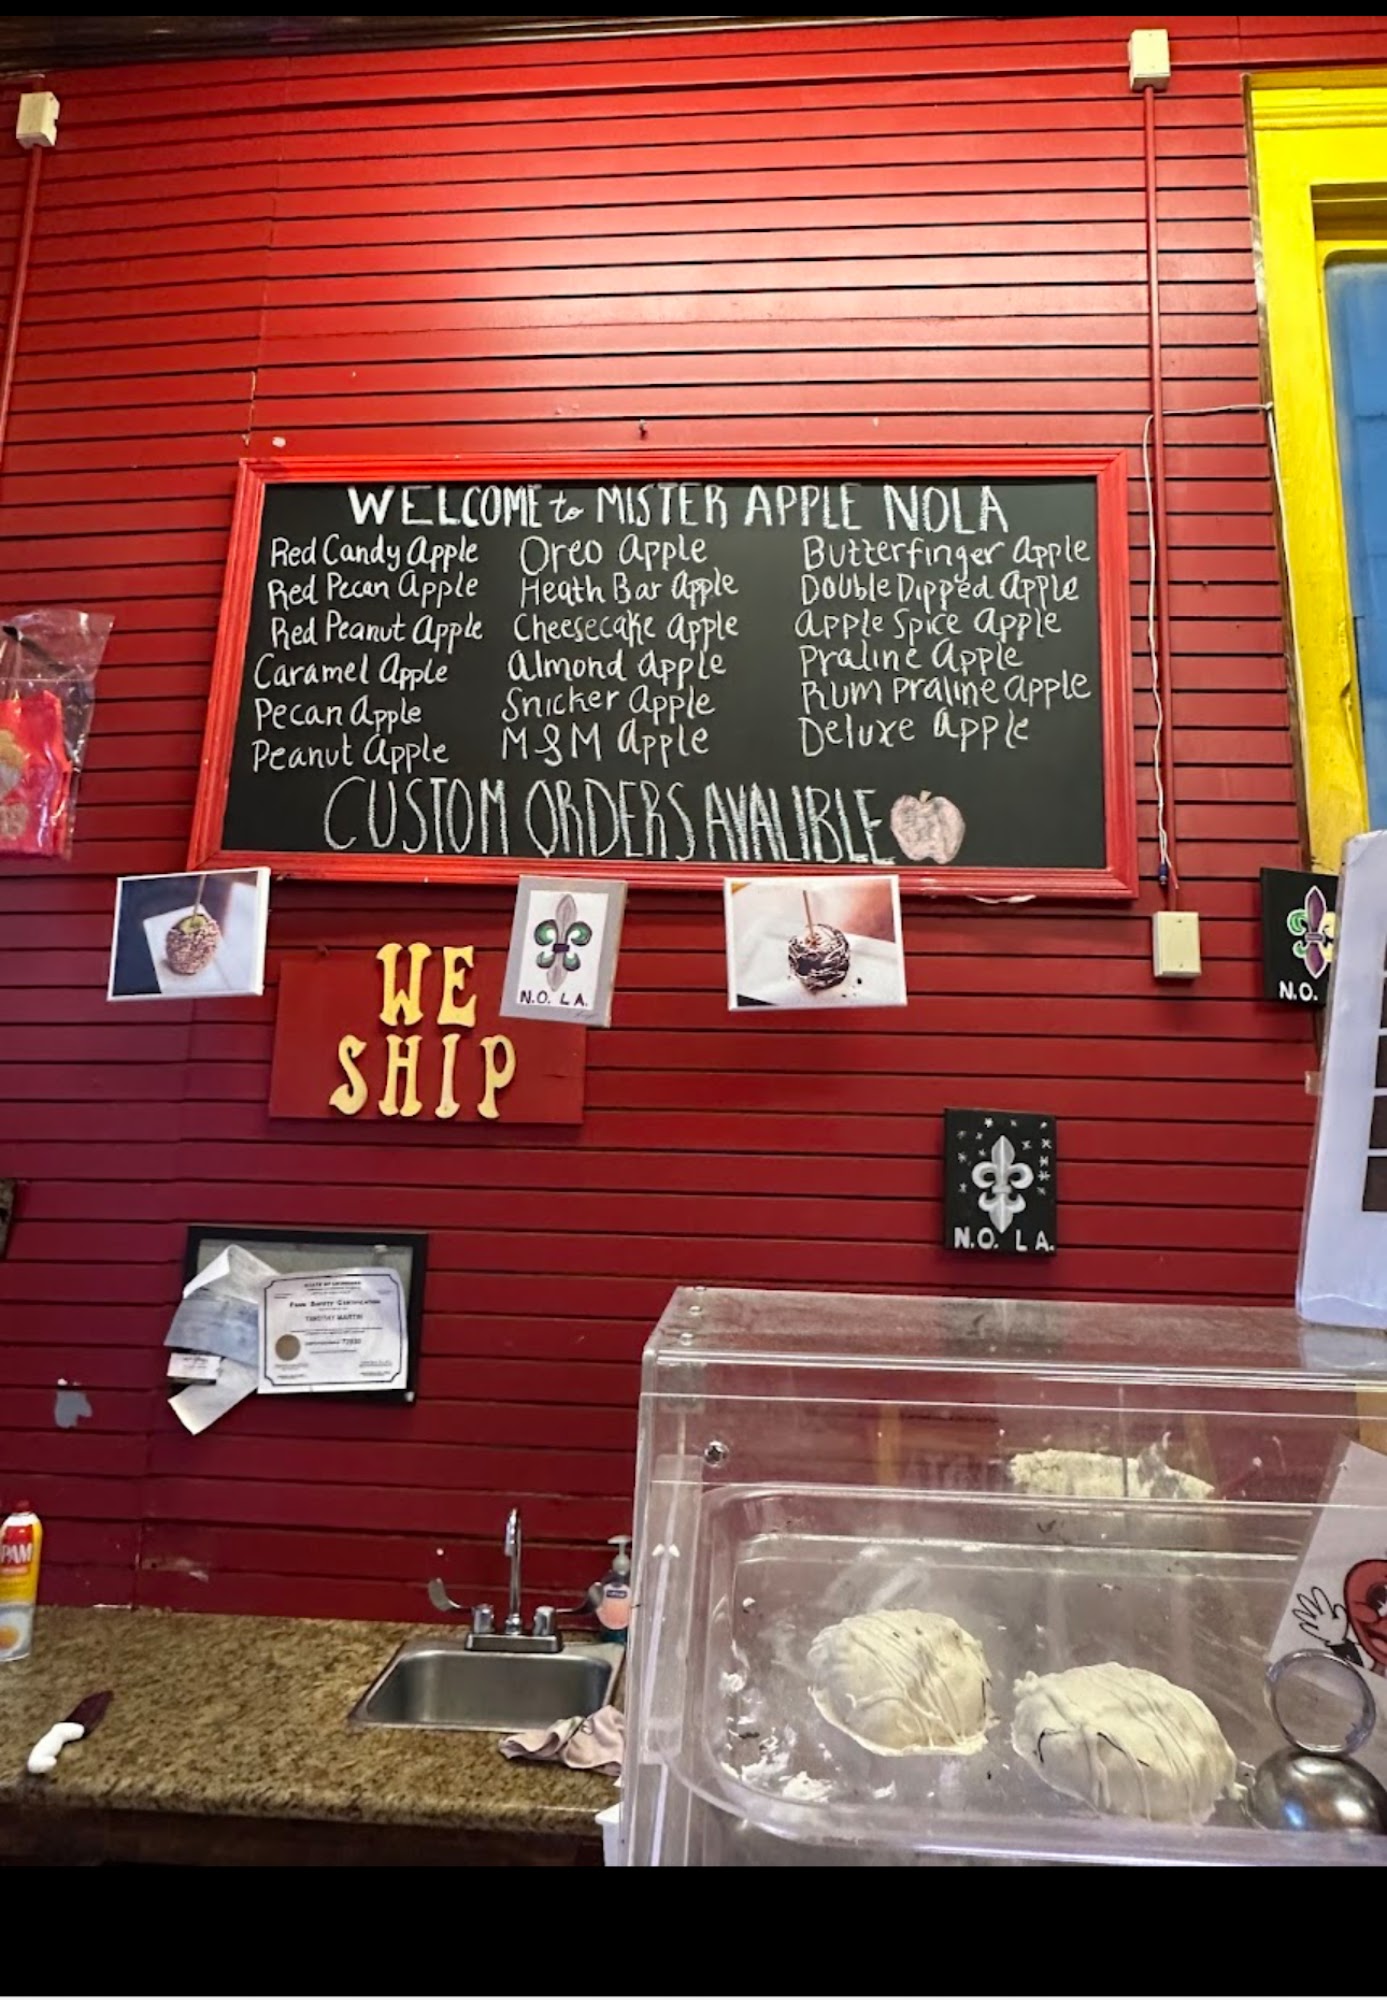 WELCOME to MISTER APPLE NOLA
Red Candy Apple
Red Pecan Apple
Red Peanut Apple
Caramel Apple
Pecan Apple
Peanut Apple
Oreo Apple
Heath Bar Apple
Cheesecake Apple
Almond Apple
Snicker Apple
M&M Apple
Butterfinger Apple
Double Dipped Apple
Apple Spice Apple
Praline Apple
Rum Praline Apple
Deluxe Apple
CUSTOM ORDERS AVALIBLE
WE
SHIP
N.O. L A.
N.O.
N.O. L A.
STATE OF LOUISIANA
FOOD SAFETY CERTIFICATION
TIMOTHY MARTIN
PAM